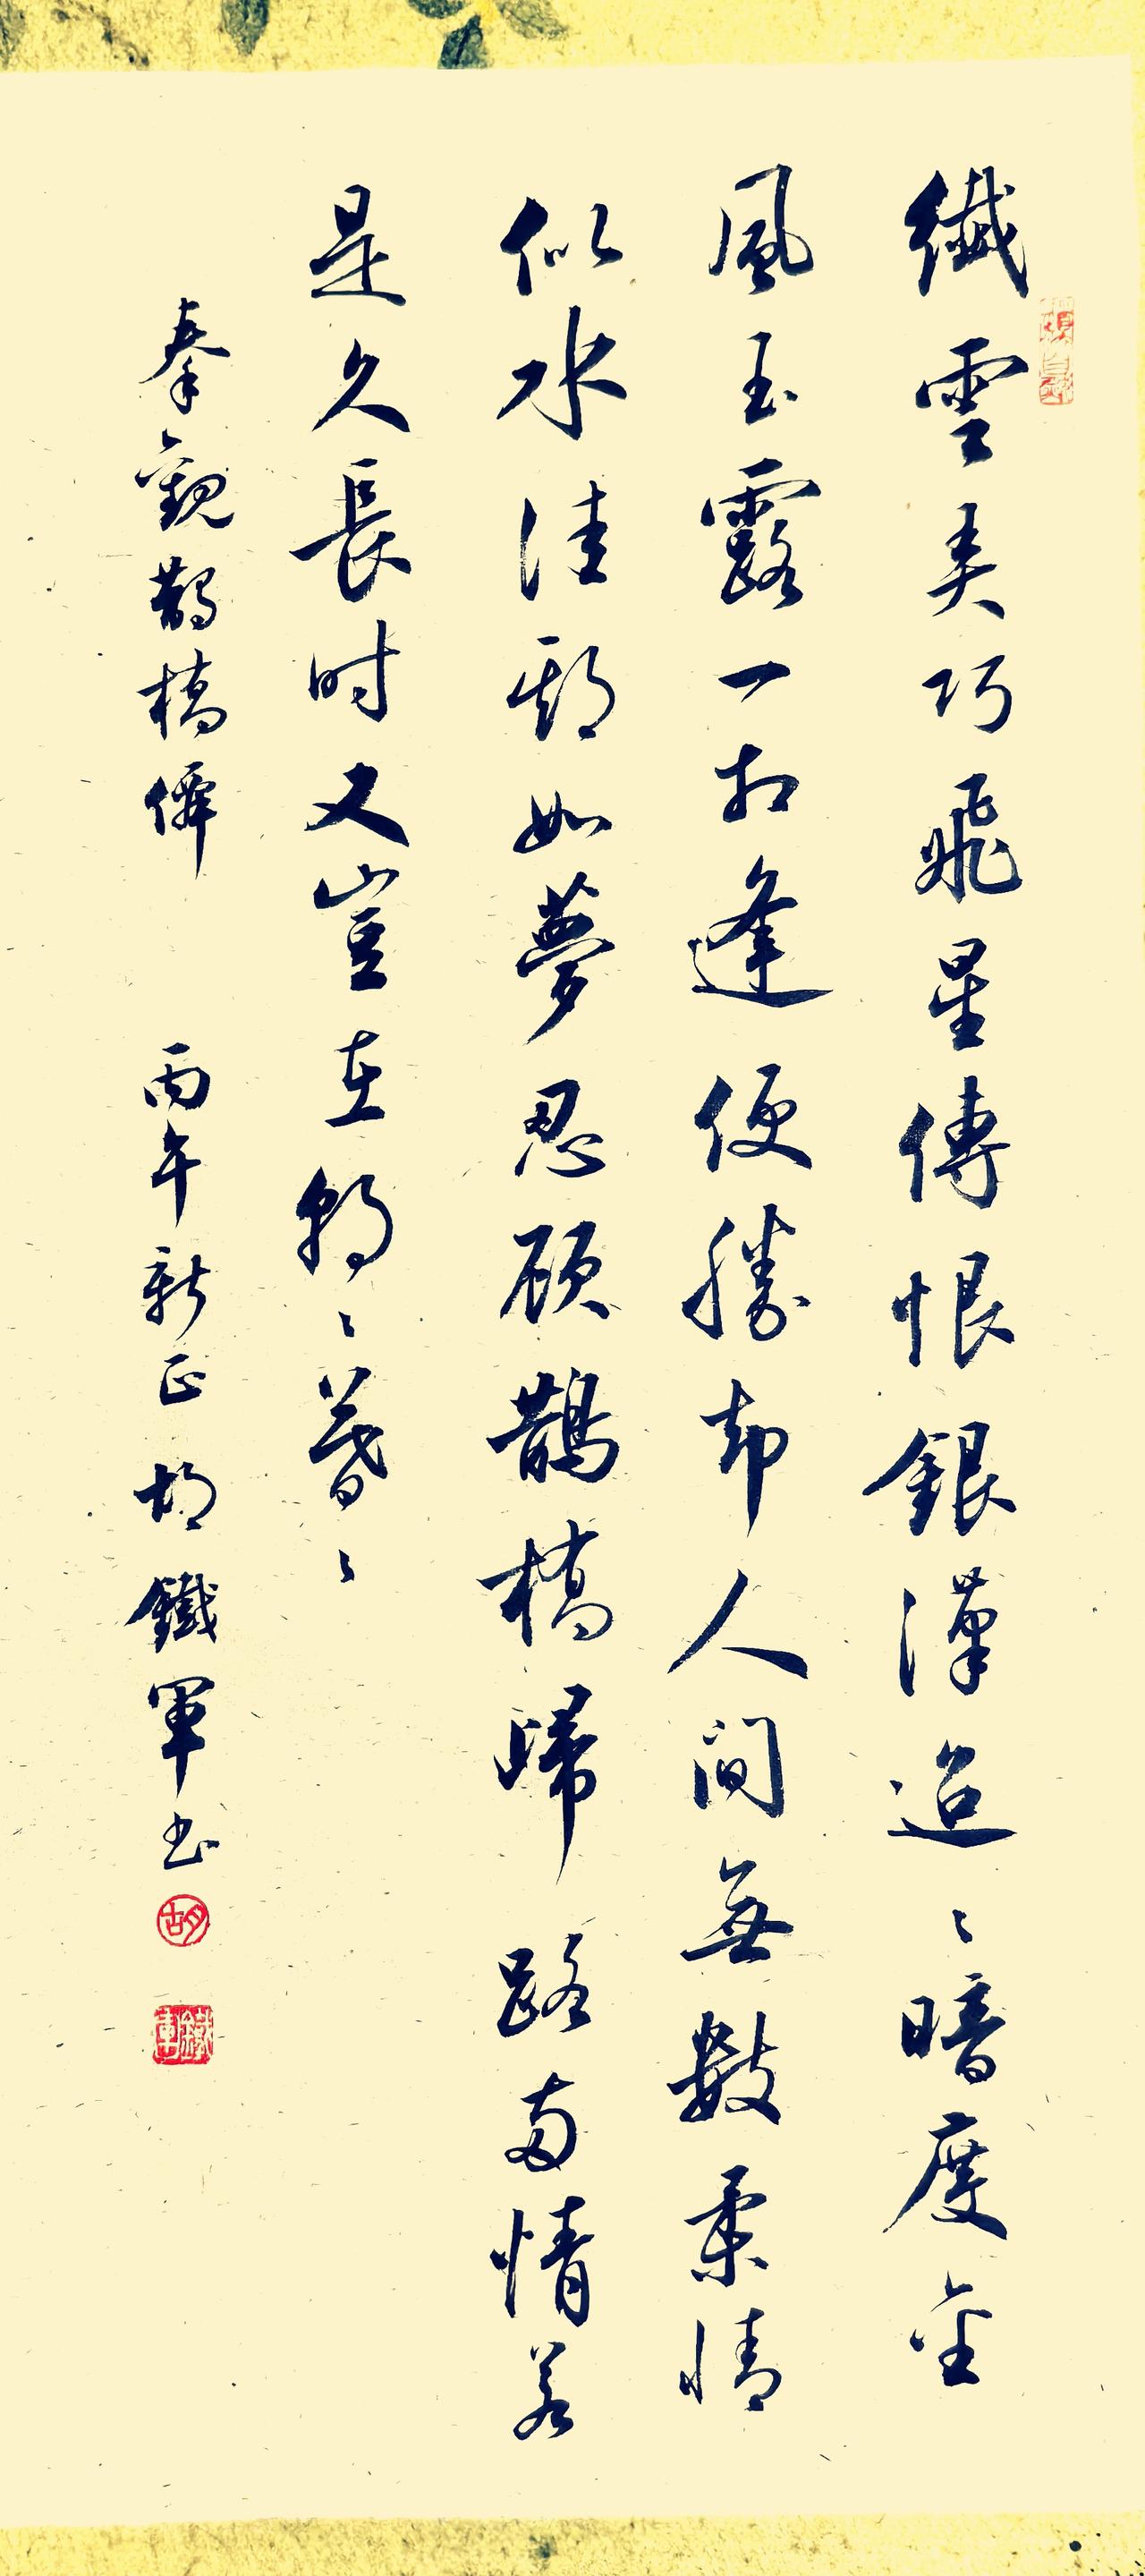 纖雲美巧飛星傳恨銀漢迢〻暗度金
風玉露一相逢便勝却人间無數柔情
似水佳期如夢忍顾鵲橋歸路两情若
是久長时又豈在朝〻暮〻
秦觀鵲橋僊 丙午新正 胡鐵軍书
胡
鐵軍